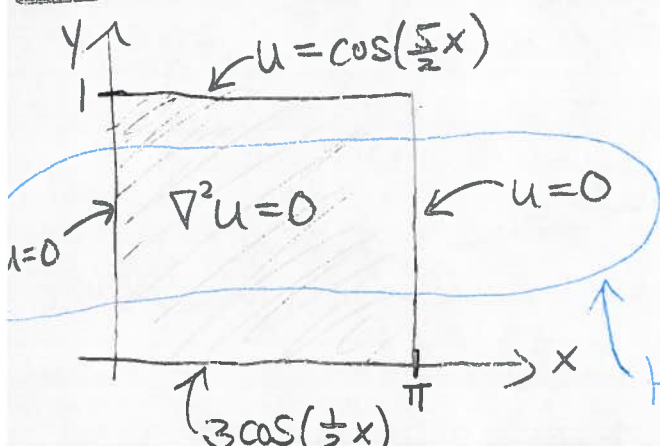 y
u = cos(5/2 x)
1
∇²u=0
u=0
u=0
x
π
3cos(1/2 x)